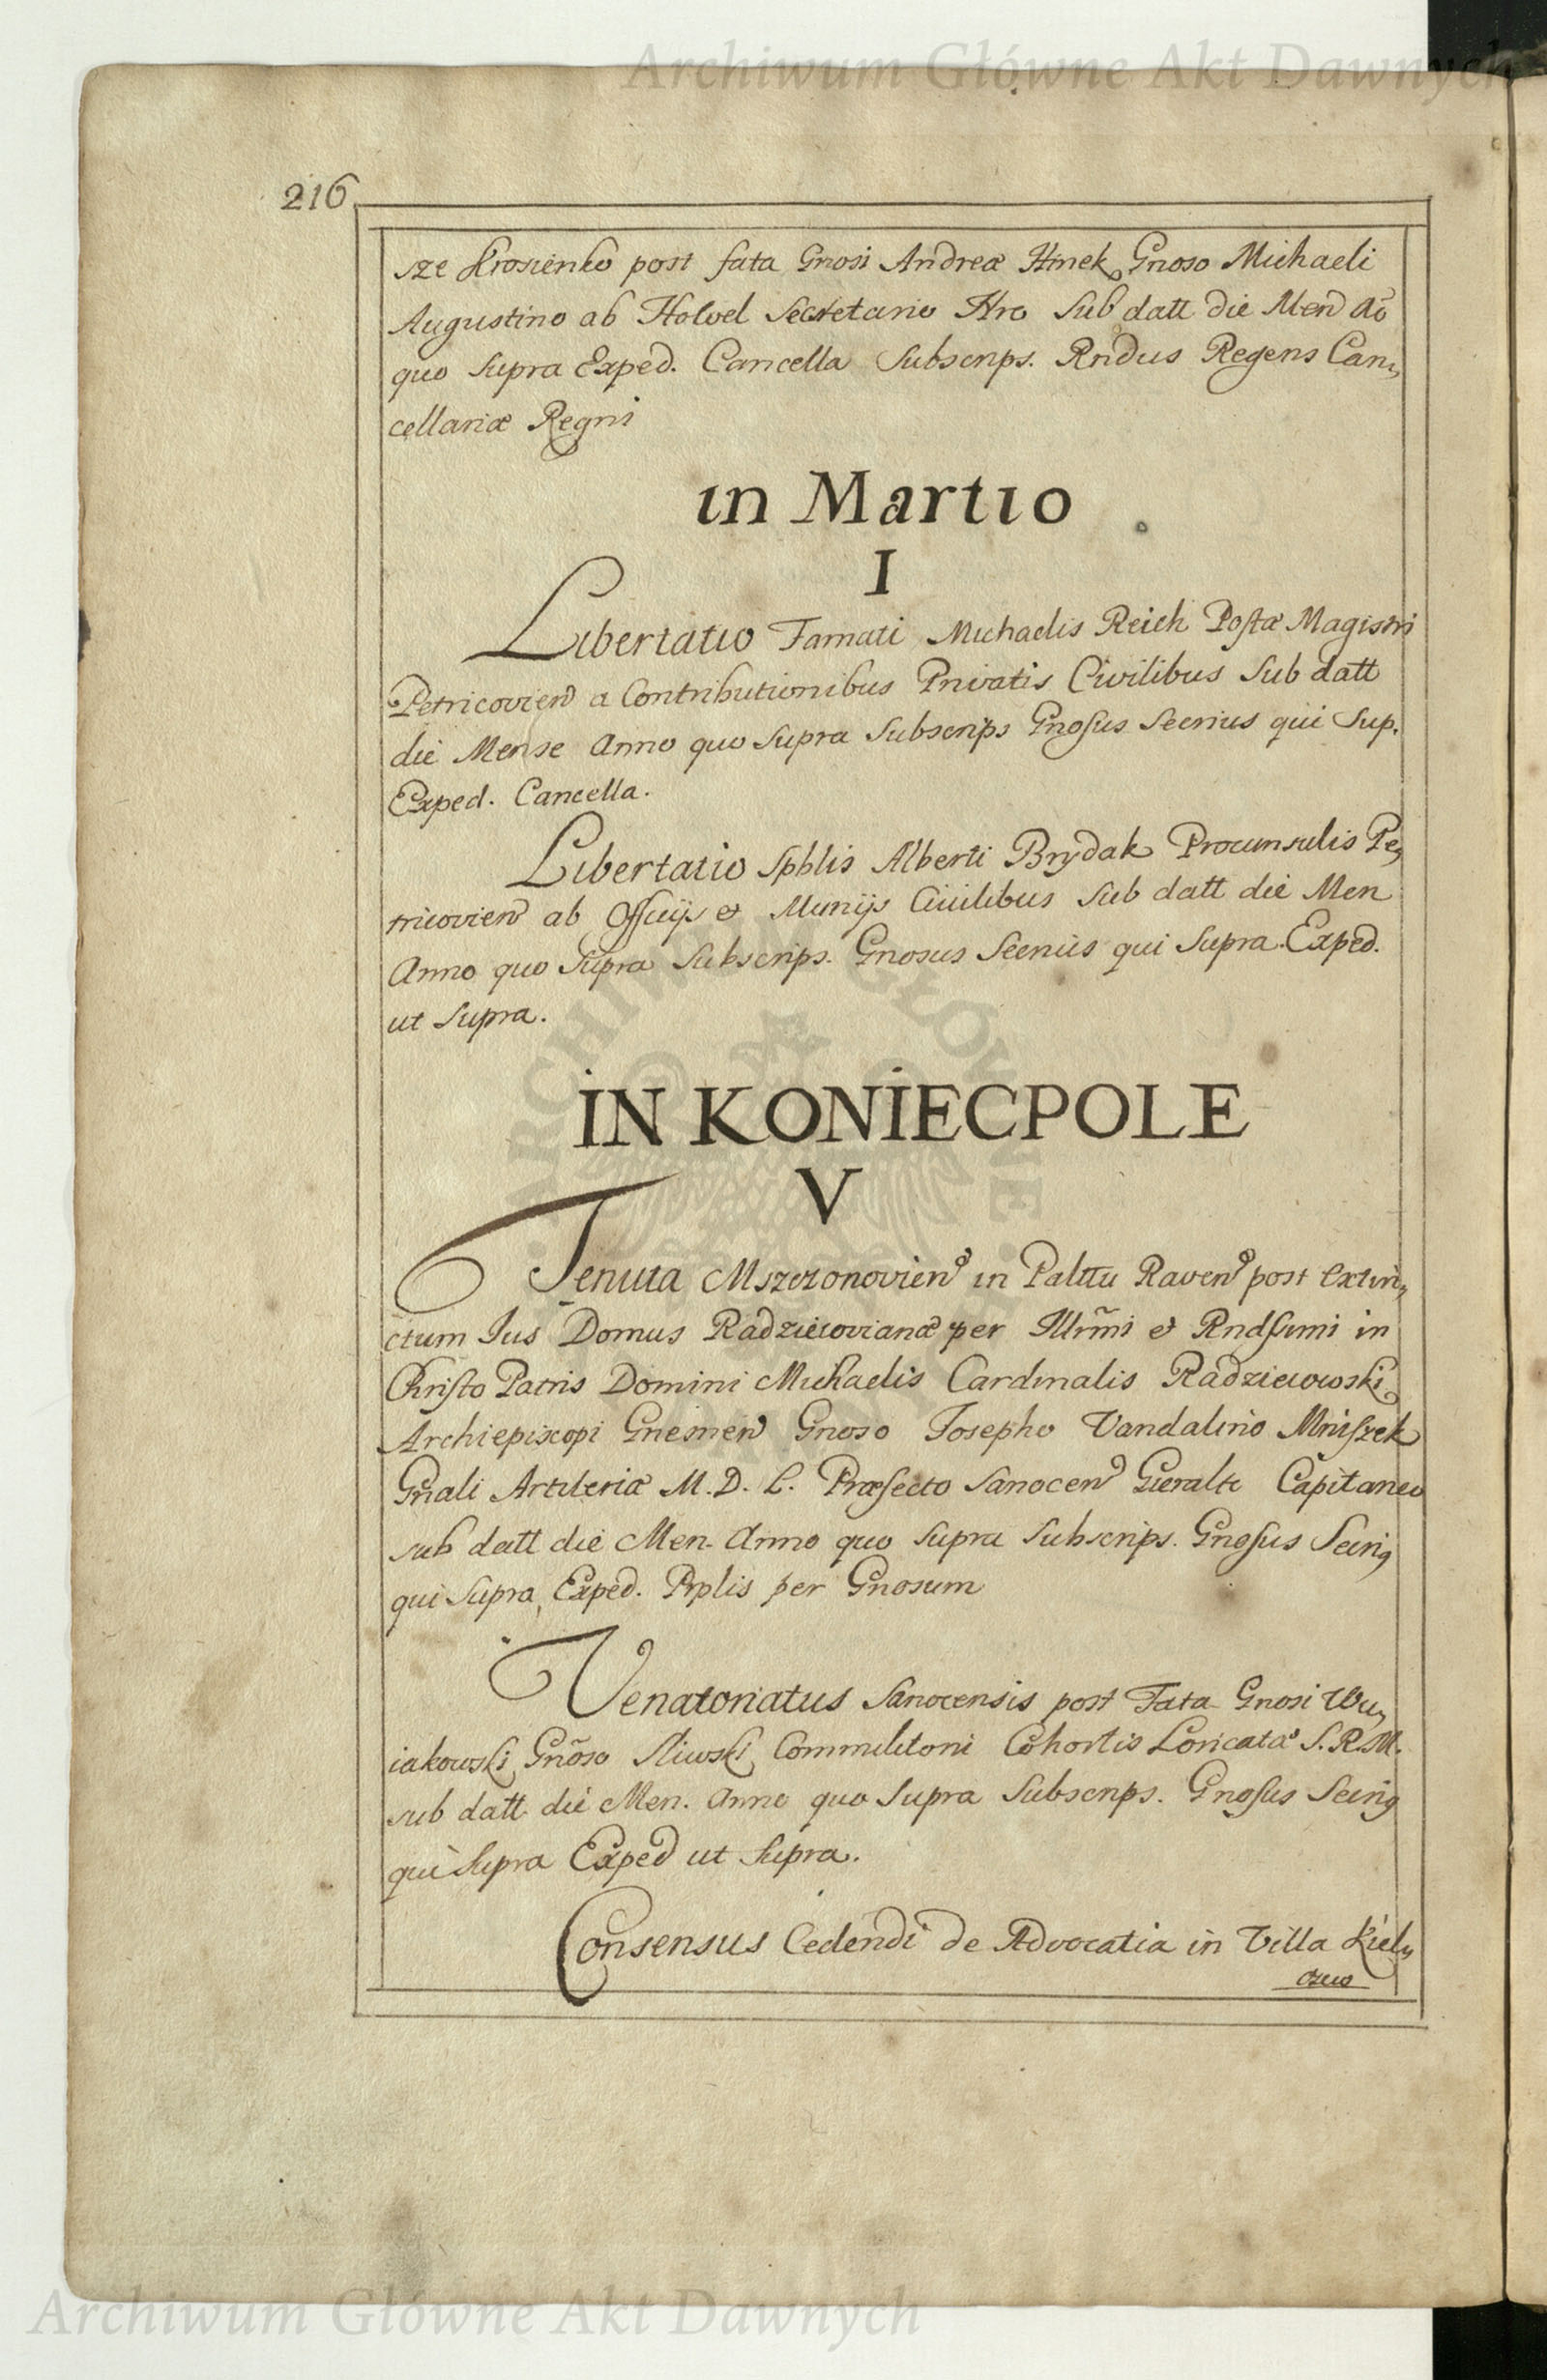 Archiwum Główne Akt Dawnych
216
sze Krosienko post fata Gnosi Andreæ Hinek Gnoso Michaeli
Augustino ab Holvel Secretario Nro Sub datt die Men Ao
quo Supra Exped. Cancella Subscrips. Rndus Regens Can,,
cellariæ Regni
in Martio
I
Libertatio Famati Michaelis Reich Postæ Magistri
Petricovien a Contributionibus Privatis Civilibus Sub datt
die Mense Anno quo Supra Subscrips Gnosus Secrius qui Sup.
Exped. Cancella.
Libertatio Spblis Alberti Brydak Proconsulis Pe,,
tricovien ab Officijs et Munijs Civilibus Sub datt die Men
Anno quo Supra Subscrips. Gnosus Secrius qui Supra. Exped.
ut Supra.
IN KONIECPOLE
V
Tenuta Mszczonovien in Palttu Raven post extin,,
ctum Ius Domus Radzieiovianæ per Illrmi et Rndssimi in
Christo Patris Domini Michaelis Cardinalis Radzieiowski
Archiepiscopi Gnesnen Gnoso Josepho Vandalino Mniszek
Gnali Artileriæ M. D. L. Præfecto Sanocen Capitaneo
sub datt die Men. Anno quo Supra Subscrips. Gnosus Secrius
qui Supra, Exped. Prplis per Gnosum
Venatoriatus Sanocensis post Fata Gnosi Wu,,
iakowski Gnoso Sliwski Commilitoni Cohortis Loricatæ S. R. M.
sub datt die Men. Anno quo Supra Subscrips. Gnosus Secrius
qui Supra Exped ut Supra.
Consensus Cedendi de Advocatia in Villa Kiel,,
czew
Archiwum Główne Akt Dawnych